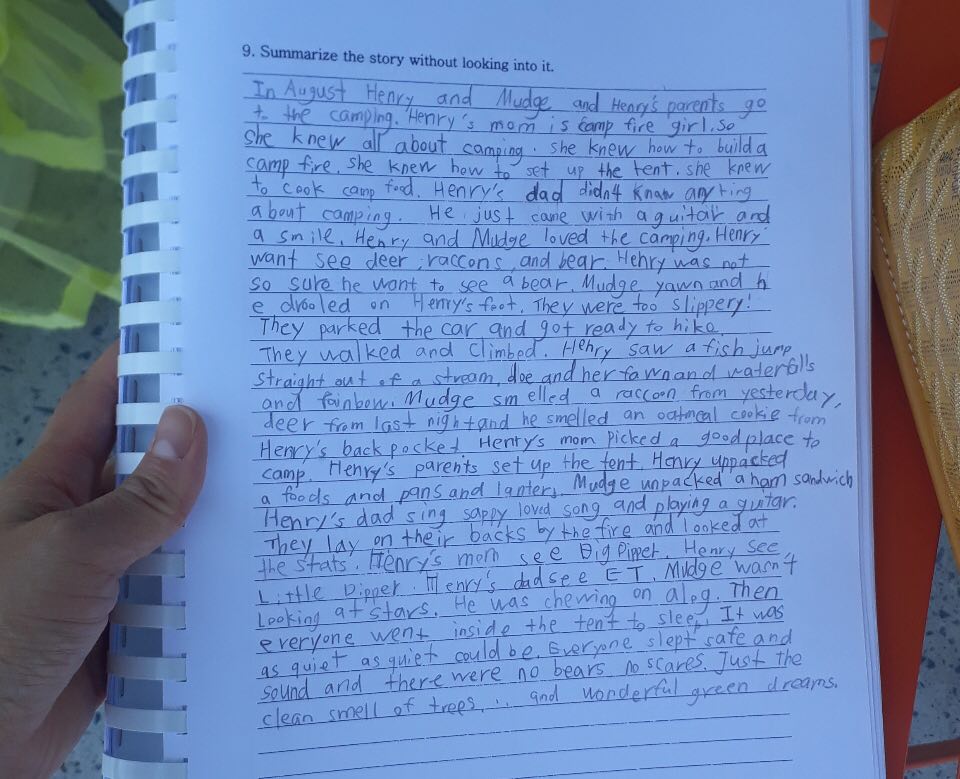 9. Summarize the story without looking into it.
In August Henry and Mudge and Henry's parents go
to the camping. Henry's mom is camp fire girl. so
she knew all about camping. she knew how to build a
camp fire. she knew how to set up the tent. she knew
to cook camp food. Henry's dad didn't know anything
about camping. He just came with a guitar and
a smile. Henry and Mudge loved the camping. Henry
want see deer, raccons, and bear. Henry was not
so sure he want to see a bear. Mudge yawn and h
e drooled on Henry's foot. They were too slippery!
They parked the car and got ready to hike.
They walked and climbed. Henry saw a fish jump
straight out of a stream, doe and her fawn and waterfalls
and rainbow. Mudge smelled a raccoon from yesterday,
deer from last night and he smelled an oatmeal cookie from
Henry's back pocket. Henry's mom picked a good place to
camp. Henry's parents set up the tent. Henry unpacked
a foods and pans and lanters. Mudge unpacked a ham sandwich
Henry's dad sing sappy loved song and playing a guitar.
They lay on their backs by the fire and looked at
the stats. Henry's mom see Big Dipper. Henry see
Little Dipper. Henry's dad see E T. Mudge wasn't
Looking at stars. He was chewing on a log. Then
everyone went inside the tent to sleep. It was
as quiet as quiet could be. Everyone slept safe and
sound and there were no bears no scares. Just the
clean smell of trees... and wonderful green dreams.